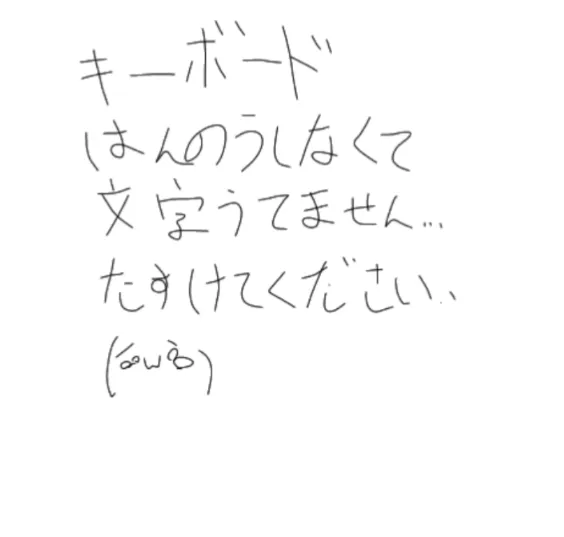 キーボード
はんのうしなくて
文字うてません...
たすけてください..
(´;ω;`)